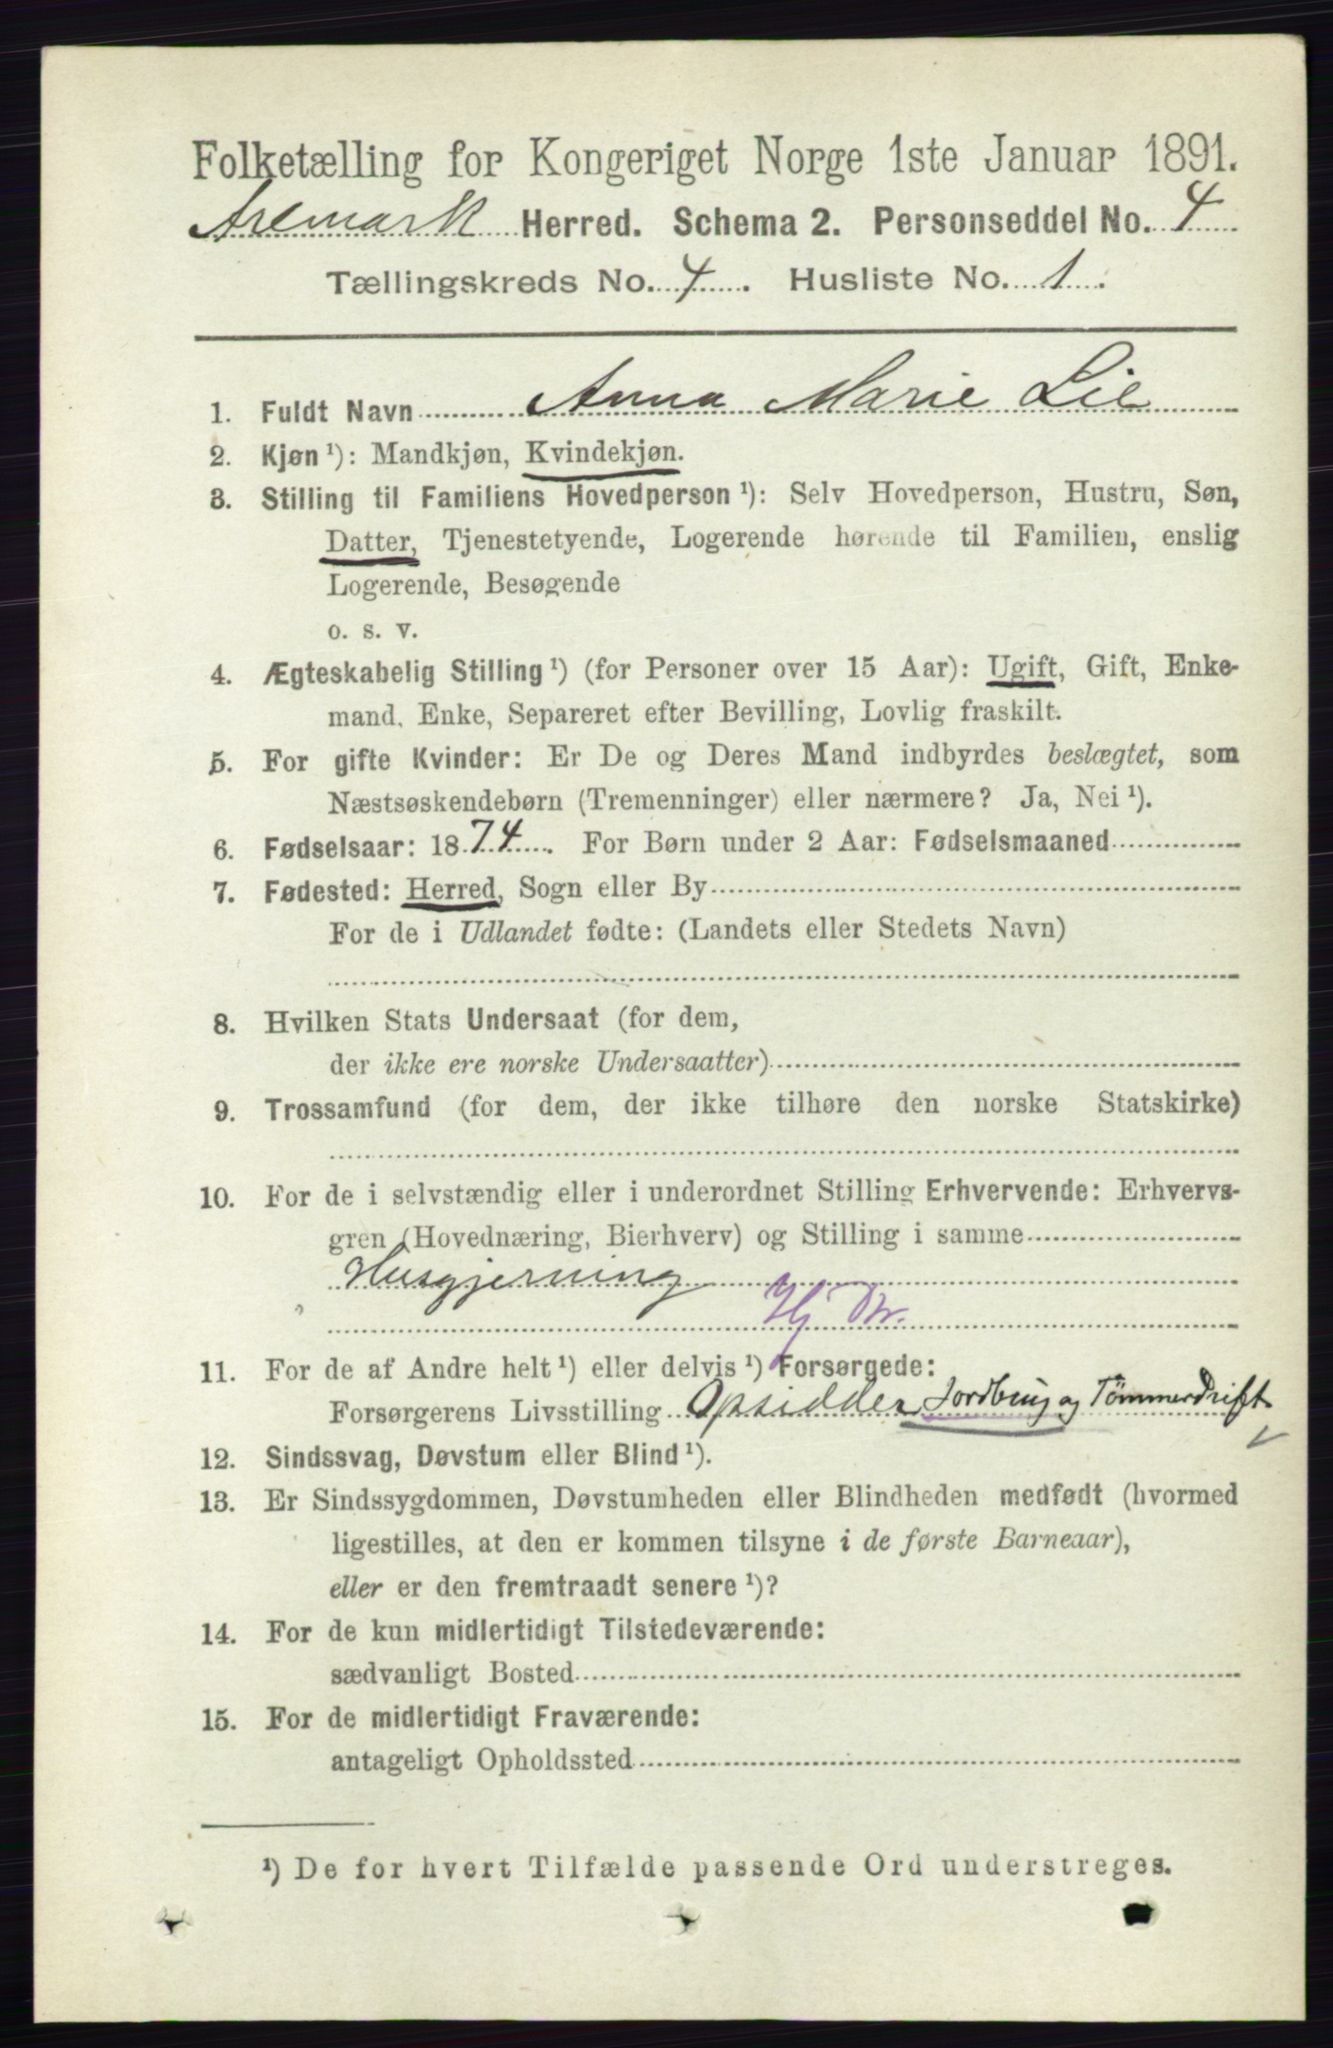 Folketælling for Kongeriget Norge 1ste Januar 1891.
Aremark Herred. Schema 2. Personseddel No. 4
Tællingskreds No. 4. Husliste No. 1.
1. Fuldt Navn Anna Marie Lie
2. Kjøn ¹): Mandkjøn, Kvindekjøn.
3. Stilling til Familiens Hovedperson ¹): Selv Hovedperson, Hustru, Søn,
Datter, Tjenestetyende, Logerende hørende til Familien, enslig
Logerende, Besøgende
o. s. v.
4. Ægteskabelig Stilling ¹) (for Personer over 15 Aar): Ugift, Gift, Enke-
mand, Enke, Separeret efter Bevilling, Lovlig fraskilt.
5. For gifte Kvinder: Er De og Deres Mand indbyrdes beslægtet, som
Næstsøskendebørn (Tremenninger) eller nærmere? Ja, Nei ¹).
6. Fødselsaar: 1874. For Børn under 2 Aar: Fødselsmaaned
7. Fødested: Herred, Sogn eller By
For de i Udlandet fødte: (Landets eller Stedets Navn)
8. Hvilken Stats Undersaat (for dem,
der ikke ere norske Undersaatter)
9. Trossamfund (for dem, der ikke tilhøre den norske Statskirke)
10. For de i selvstændig eller i underordnet Stilling Erhvervende: Erhvervs-
gren (Hovednæring, Bierhverv) og Stilling i samme
Husgjerning
Hj Dr.
11. For de af Andre helt ¹) eller delvis ¹) Forsørgede:
Forsørgerens Livsstilling Opsidder Jordbrug og Tömmerdrift
12. Sindssvag, Døvstum eller Blind ¹).
13. Er Sindssygdommen, Døvstumheden eller Blindheden medfødt (hvormed
ligestilles, at den er kommen tilsyne i de første Barneaar),
eller er den fremtraadt senere ¹)?
14. For de kun midlertidigt Tilstedeværende:
sædvanligt Bosted
15. For de midlertidigt Fraværende:
antageligt Opholdssted
¹) De for hvert Tilfælde passende Ord understreges.